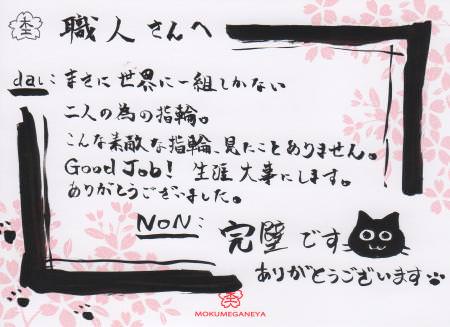 杢
職人さんへ
dai：まさに世界に一組しかない
二人の為の指輪。
こんな素敵な指輪、見たことありません。
Good Job! 生涯大事にします。
ありがとうございました。
NoN：
完璧です
ありがとうございます
杢
MOKUMEGANEYA